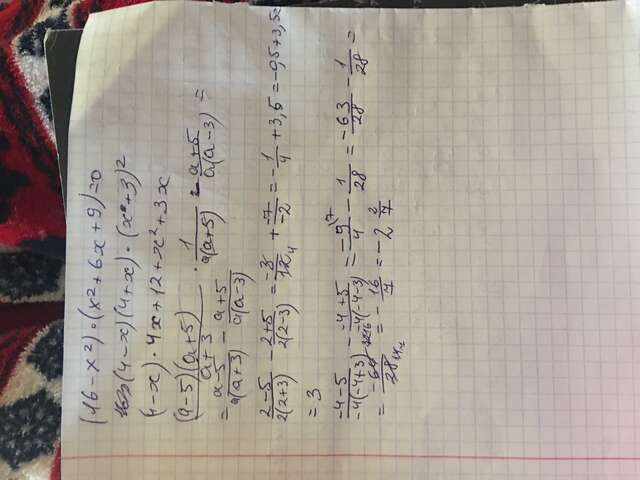 (16-x²)·(x²+6x+9)=0
(4-x)(4+x)·(x+3)²
(4-x)·4x+12+x²+3x
(a-5)(a+5)/a+3 · 1/a(a+5) - a+5/a(a-3) =
= a-5/a(a+3) - a+5/a(a-3)
2-5/2(2+3) - 2+5/2(2-3) = + -7/-2 = -1/4 + 3,5 = -0,5+3,5=
= 3
-4-5/-4(-4+3) - -4+5/-4(-4-3) = -9/4 \7 - 1/28 = -63/28 - 1/28 =
= -64/28 = -16/7 = -2 2/7